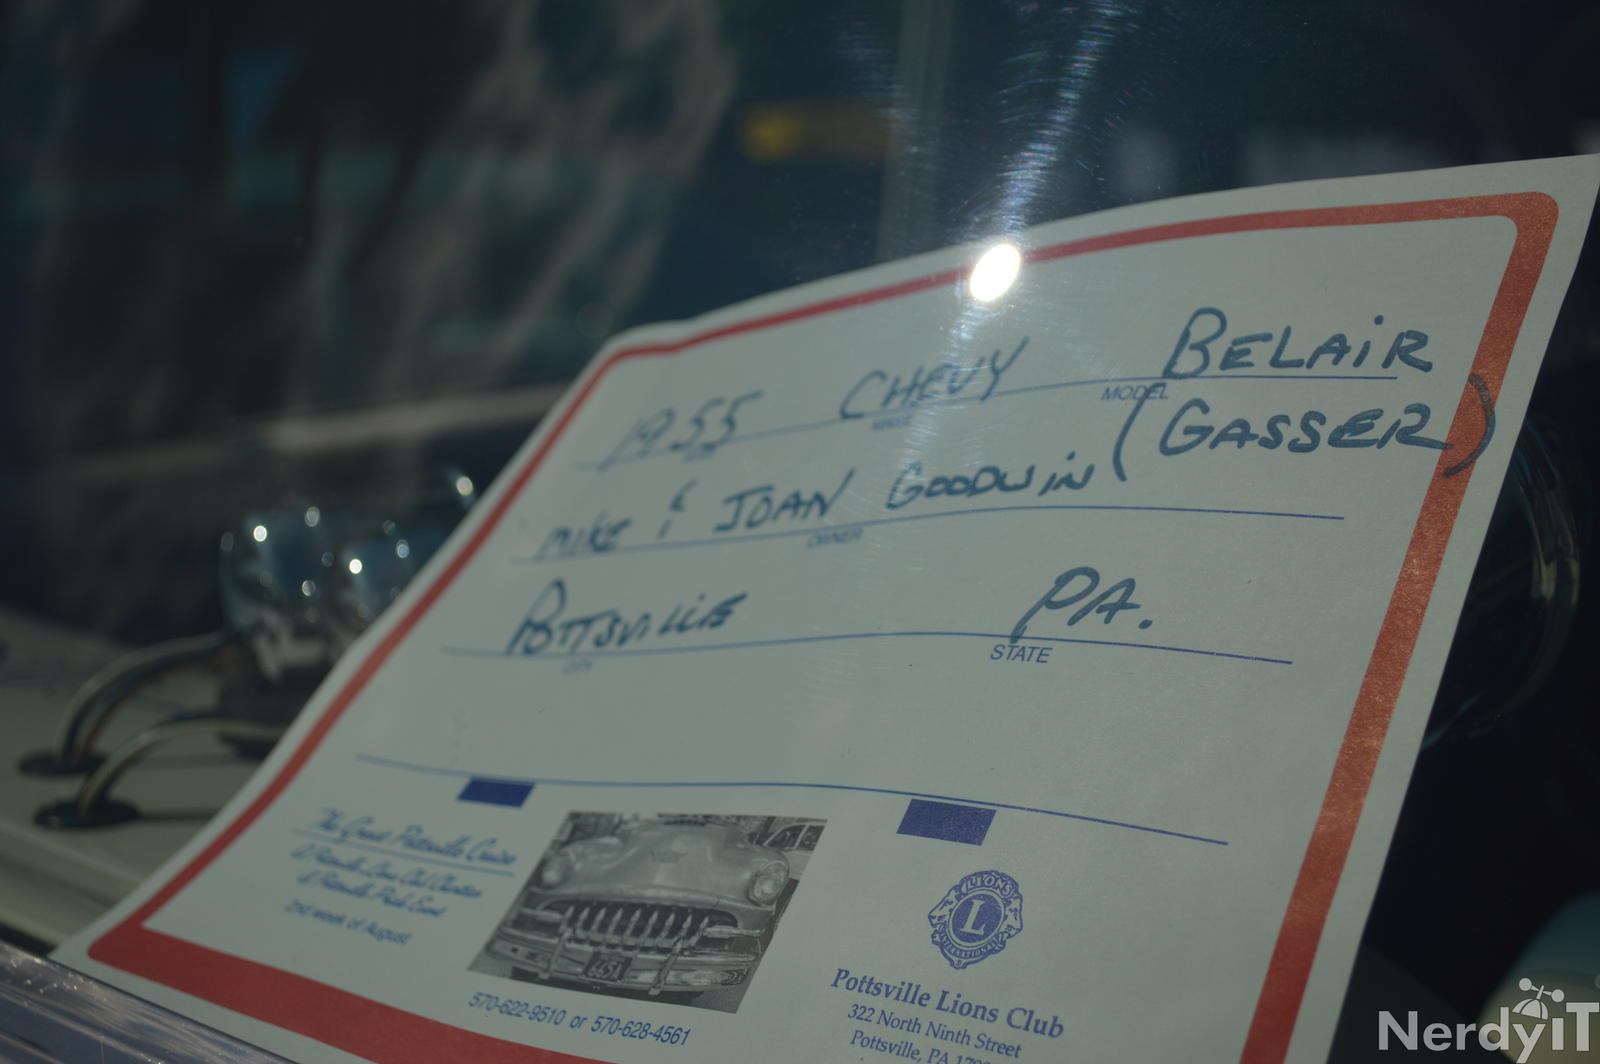 1955 CHEVY BELAIR
MAKE MODEL
(GASSER)
MIKE & JOAN GOODWIN
OWNER
POTTSVILLE PA.
CITY STATE
The Great Pottsville Cruise
A Pottsville Lions Club Charities
& Pottsville Pride Event
2nd week of August
6451
570-622-9510 or 570-628-4561
LIONS
L
INTERNATIONAL
Pottsville Lions Club
322 North Ninth Street
Pottsville, PA
NerdyiT